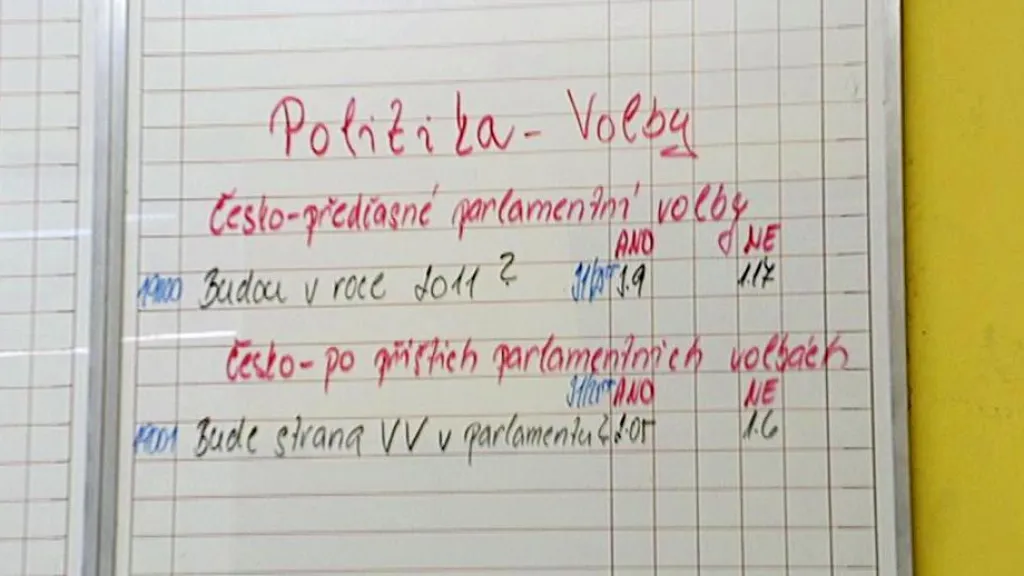 Politika - Volby
Česko-předčasné parlamentní volby
ANO NE
19000 Budou v roce 2011? 3.9 1.17
Česko-po příštích parlamentních volbách
ANO NE
19001 Bude strana VV v parlamentu? 2.05 1.6